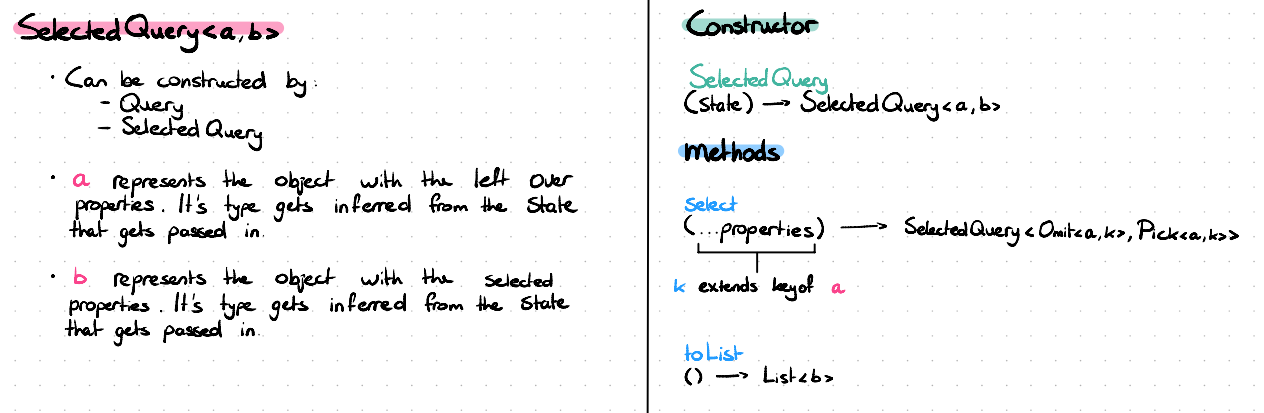 SelectedQuery<a,b>
· Can be constructed by:
- Query
- SelectedQuery
· a represents the object with the left over
properties. It's type gets inferred from the State
that gets passed in.
· b represents the object with the selected
properties. It's type gets inferred from the State
that gets passed in.
Constructor
SelectedQuery
(State) → SelectedQuery<a,b>
Methods
Select
(...properties) → SelectedQuery<Omit<a,k>, Pick<a,k>>
k extends keyof a
toList
() → List<b>